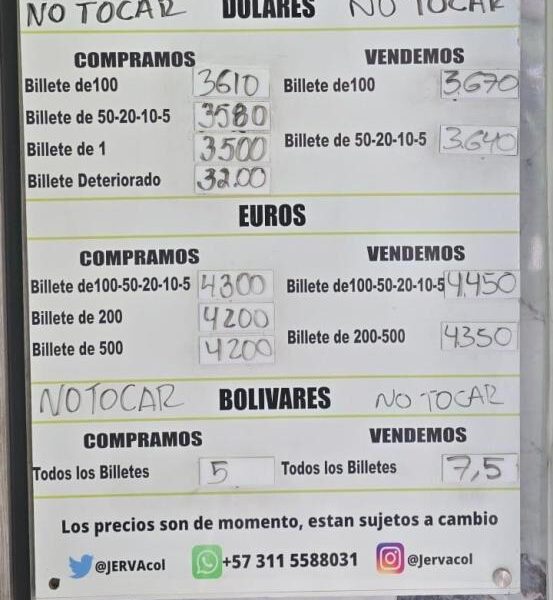 NO TOCAR DOLARES NO TOCAR
COMPRAMOS VENDEMOS
Billete de100 3610 Billete de100 3.670
Billete de 50-20-10-5 3580
Billete de 50-20-10-5 3.640
Billete de 1 3500
Billete Deteriorado 3200
EUROS
COMPRAMOS VENDEMOS
Billete de100-50-20-10-5 4300 Billete de100-50-20-10-5 4.450
Billete de 200 4200
Billete de 200-500 4350
Billete de 500 4200
NO TOCAR BOLIVARES NO TOCAR
COMPRAMOS VENDEMOS
Todos los Billetes 5 Todos los Billetes 7,5
Los precios son de momento, estan sujetos a cambio
@JERVAcol +57 311 5588031 @Jervacol